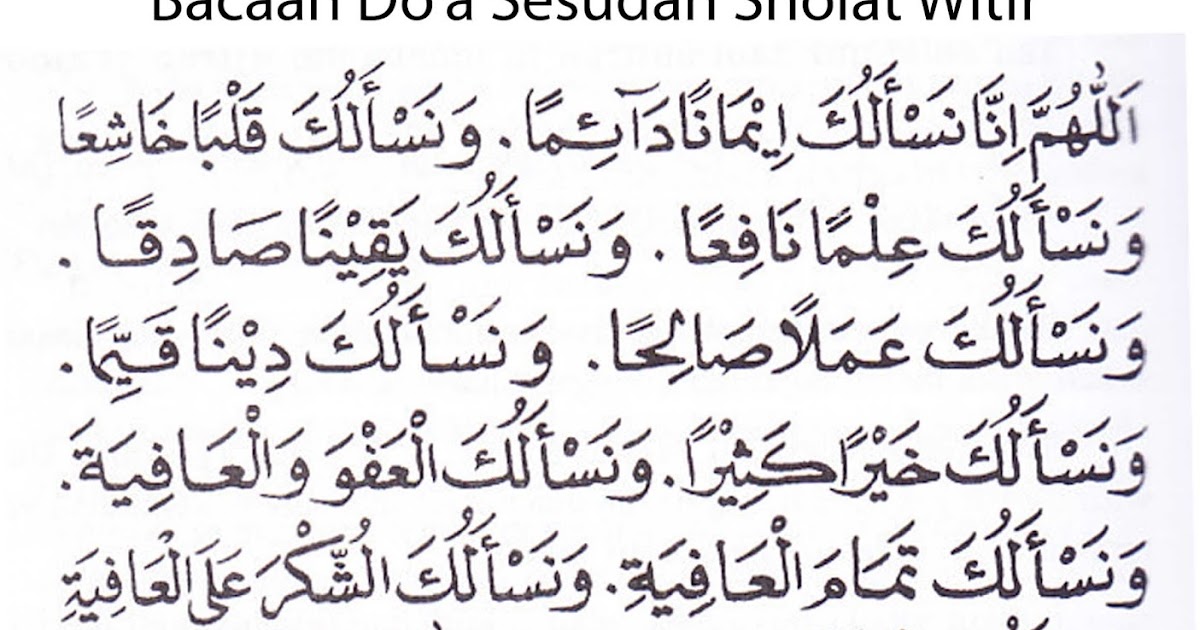 Bacaan Do'a Sesudah Sholat Witir
اَللّٰهُمَّ اِنَّا نَسْأَلُكَ اِيْمَانًا دَآئِمًا . وَنَسْأَلُكَ قَلْبًا خَاشِعًا
وَنَسْأَلُكَ عِلْمًا نَافِعًا . وَنَسْأَلُكَ يَقِيْنًا صَادِقًا .
وَنَسْأَلُكَ عَمَلًا صَالِحًا . وَنَسْأَلُكَ دِيْنًا قَيِّمًا .
وَنَسْأَلُكَ خَيْرًا كَثِيْرًا . وَنَسْأَلُكَ الْعَفْوَ وَالْعَافِيَةَ .
وَنَسْأَلُكَ تَمَامَ الْعَافِيَةِ . وَنَسْأَلُكَ الشُّكْرَ عَلَى الْعَافِيَةِ